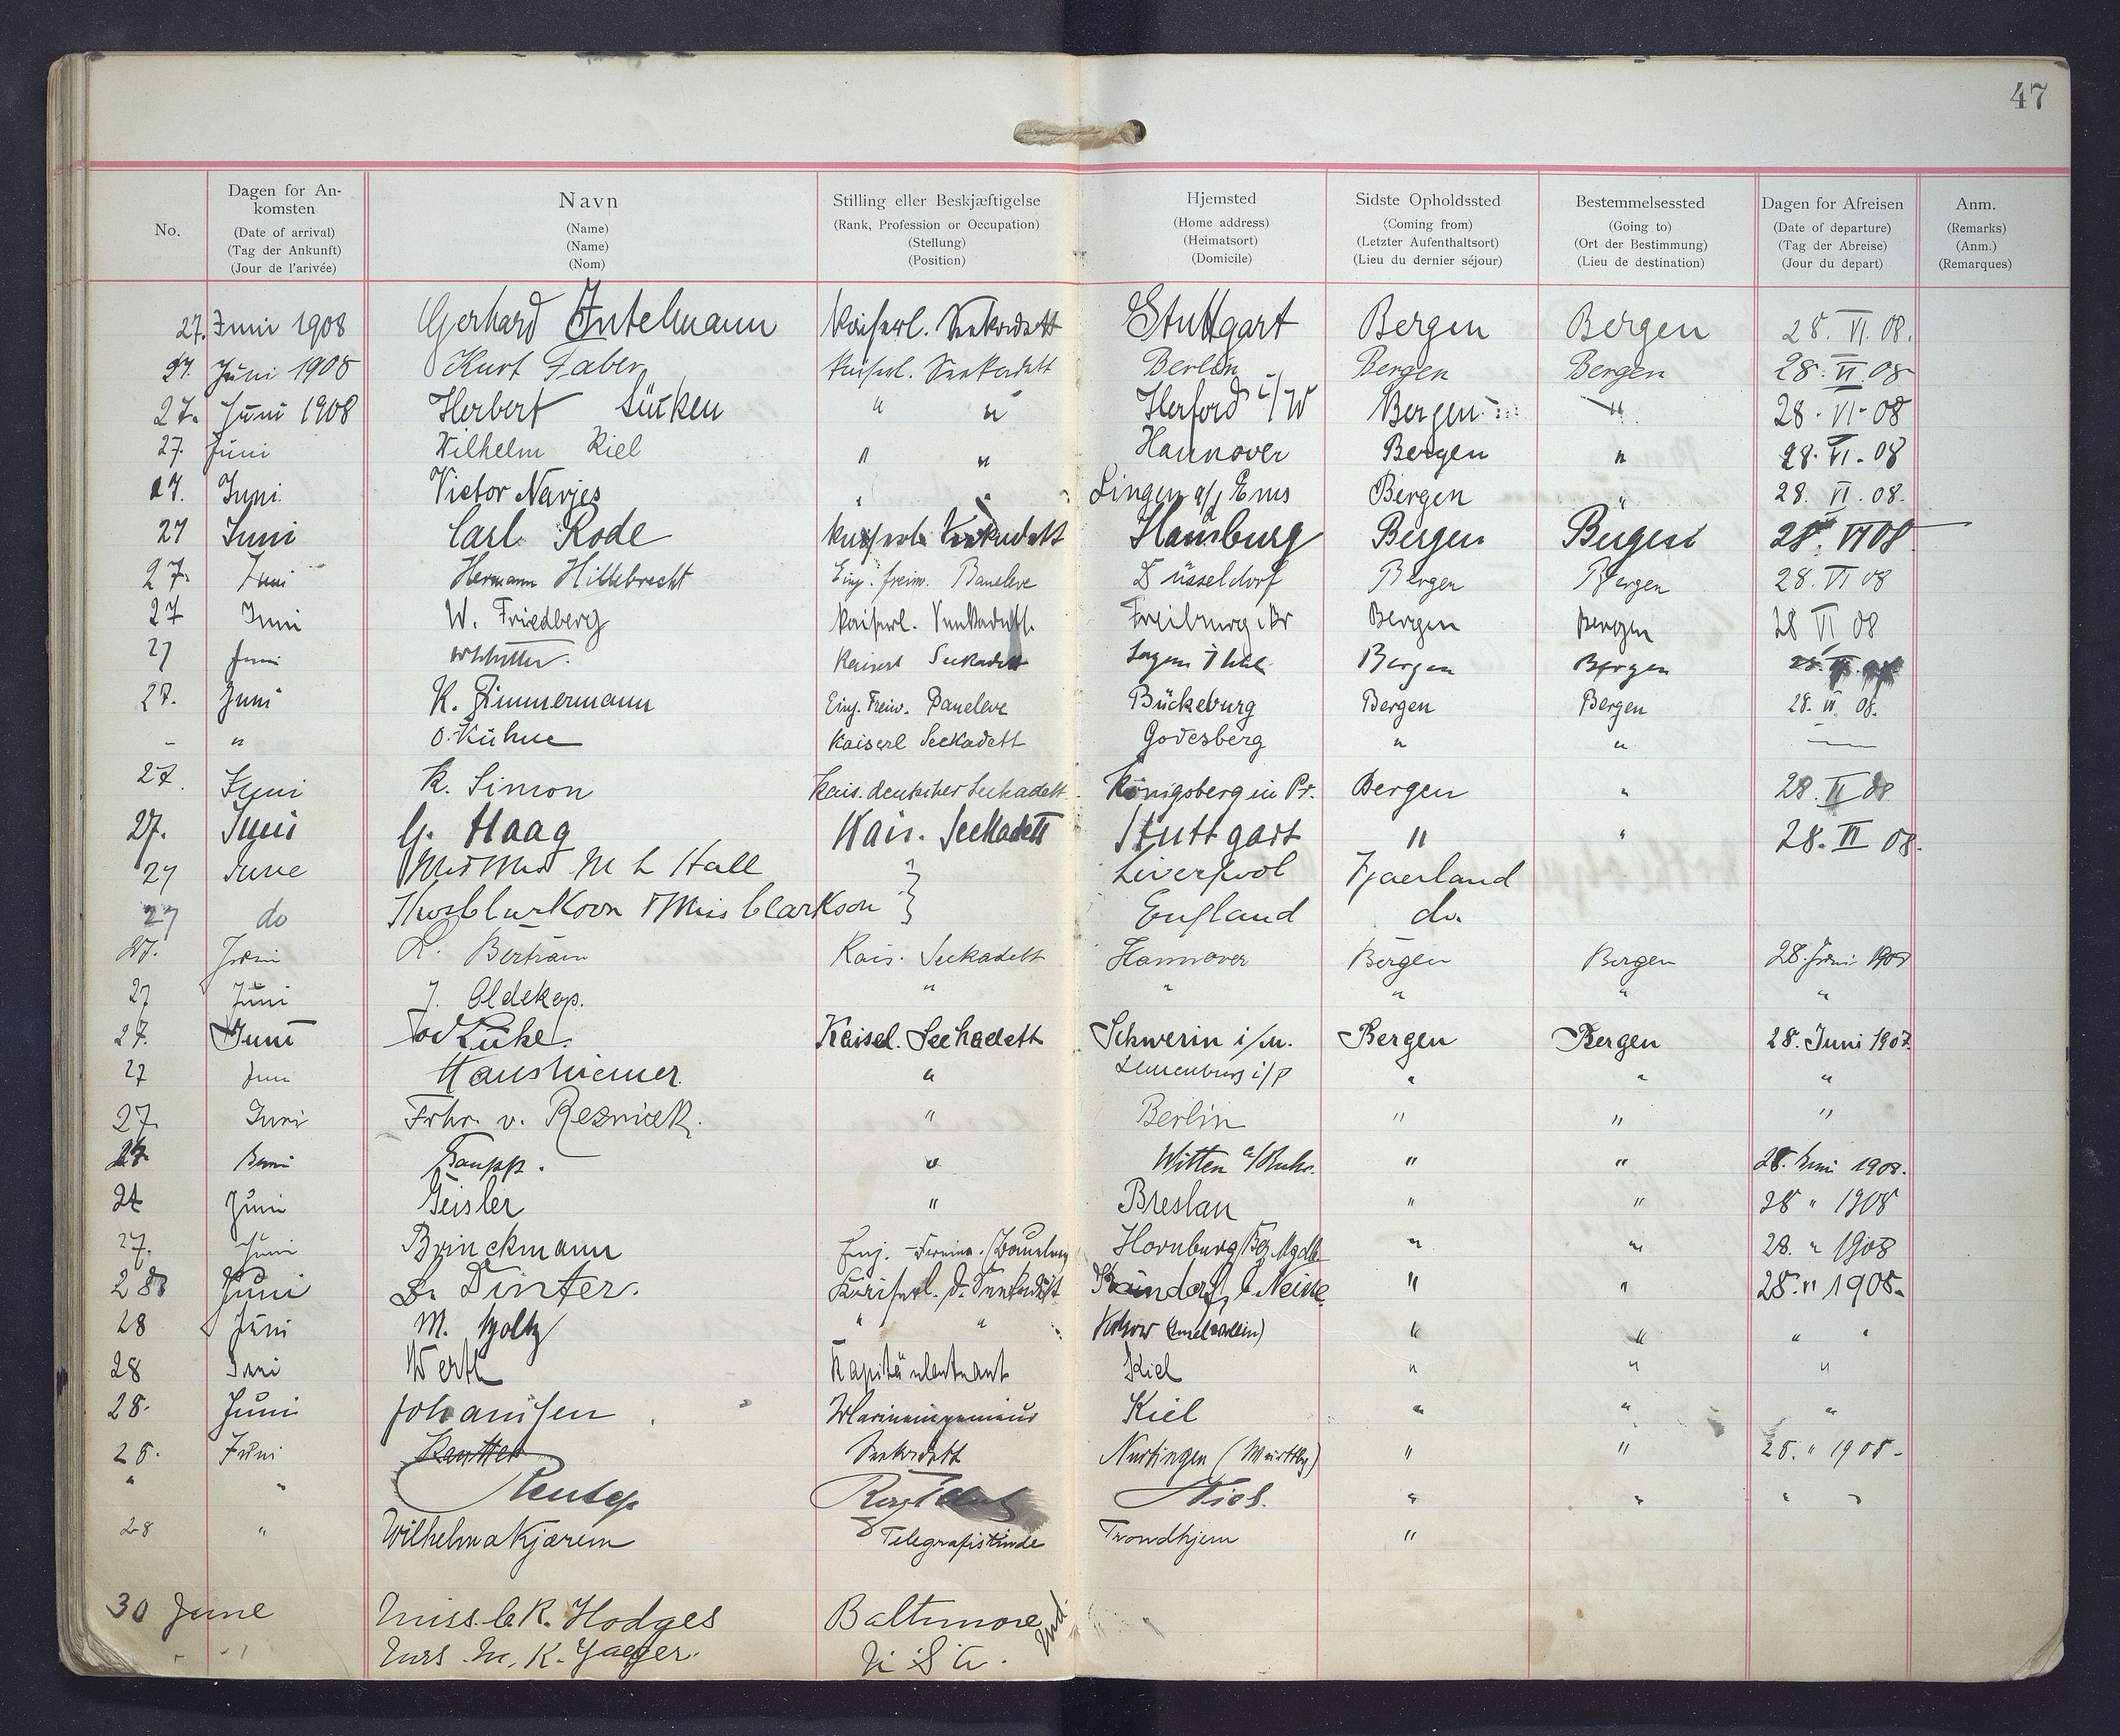 47
No.
Dagen for Ankomsten (Date of arrival) (Tag der Ankunft) (Jour de l'arivée)
Navn (Name) (Name) (Nom)
Stilling eller Beskjæftigelse (Rank, Profession or Occupation) (Stellung) (Position)
Hjemsted (Home address) (Heimatsort) (Domicile)
Sidste Opholdssted (Coming from) (Letzter Aufenthaltsort) (Lieu du dernier séjour)
Bestemmelsessted (Going to) (Ort der Bestimmung) (Lieu de destination)
Dagen for Afreisen (Date of departure) (Tag der Abreise) (Jour du depart)
Anm. (Remarks) (Anm.) (Remarques)
27. Juni 1908 Gerhard Intelmann Kaiserl. Seekadett Stuttgart Bergen Bergen 28. VI. 08.
27. Juni 1908 Kurt Faber Kaiserl. Seekadett Berlin Bergen Bergen 28. VI. 08
27. Juni 1908 Herbert Sücken " " Herford i/W Bergen " 28-VI-08
27. Juni Wilhelm Kiel " " Hannover Bergen " 28. VI. 08
27. Juni Victor Navjes " " Lingen a/ Ems Bergen " 28. VI. 08.
27 Juni Carl Rode Kaiserl. Seekadett Hamburg Bergen Bergen 28. VI 08
27. Juni Hermann Hillebrecht Einj. freiw. Baueleve Düsseldorf Bergen Bergen 28. VI 08
27 Juni W. Friedberg Kaiserl. Seekadett. Freiburg i Br Bergen Bergen 28 VI 08
27 Juni Kaiserl Seekadett Bergen Bergen
27. Juni K. Zimmermann Einj. Freiw. Baueleve Bückeburg Bergen Bergen 28. VI. 08.
- " O. Kühne Kaiserl Seekadett Godesberg " " —
27. Juni K. Simon Kais. deutscher Seekadett Königsberg in Pr. Bergen " 28. VI 08
27. Juni G. Haag Kais. Seekadett Stuttgart " " 28. VI 08.
27 June Mr & Mrs M L Hall } Liverpool Fjaerland
27 do & Miss Clarkson } England do.
27. Juni R. Bertram Kais. Seekadett Hannover Bergen Bergen 28. Juni 1908
27 Juni J. Oldekop. " " " " "
27. Juni Kaiserl. Seekadett Schwerin i/M. Bergen Bergen 28. Juni 1907.
27 Juni Hans Hiemer. " i/P " " "
27. Juni Frhr. v. Reznicek. " Berlin " " "
27. Juni Taupp. " Witten a/Ruhr. " " 28. Juni 1908.
27 Juni Geisler " Breslau " " 28 " 1908
27. Juni Brinckmann Einj. Hornburg Bez. Mgdb. " " 28. " 1908
28 Juni Dinter. Kaiserl. D. Seekadett b. Neisse " " 28. " 1908.
28 Juni M. Holtz " " " " " "
28 Juni Werth Kapitänleutnant Kiel " " "
28. Juni Johannsen Marineingenieur Kiel " " "
28. Juni Seekadett Nürtingen (Württbg) " " 28. " 1908.
" " Kiel. " " " "
28 " Wilhelma Kjærem Telegrafistinde Trondhjem "
30 June Miss. C. R. Hodges Baltimore Md.
" " Mrs. M. K. Yaeger. U S A.